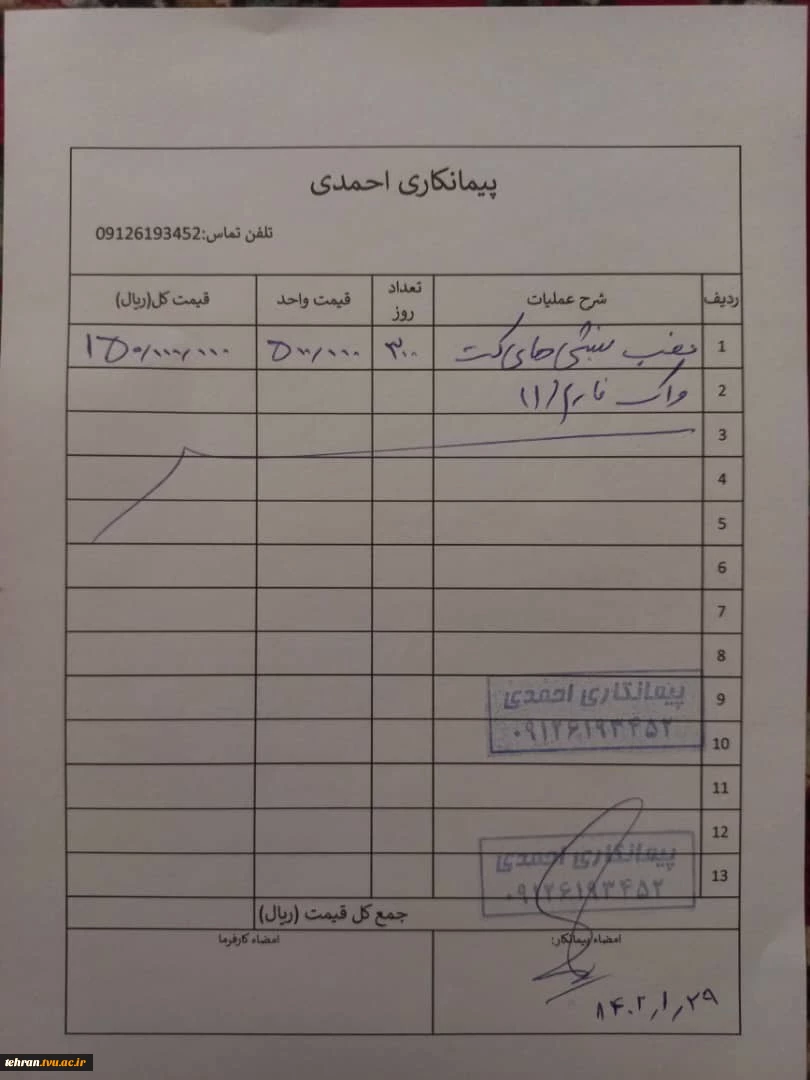 پیمانکاری احمدی
تلفن تماس:09126193452
ردیف شرح عملیات تعداد روز قیمت واحد قیمت کل(ریال)
1 نصب نبشی های کت ۳۰۰ ۵۰۰/۰۰۰ ۱۵۰/۰۰۰/۰۰۰
2 واک فارم (۱)
3
4
5
6
7
8
9
پیمانکاری احمدی
۰۹۱۲۶۱۹۳۴۵۲
10
11
12
13
پیمانکاری احمدی
۰۹۱۲۶۱۹۳۴۵۲
جمع کل قیمت (ریال)
امضاء پیمانکار:
امضاء کارفرما
۱۴۰۲/۱/۲۹
tehran.tvu.ac.ir